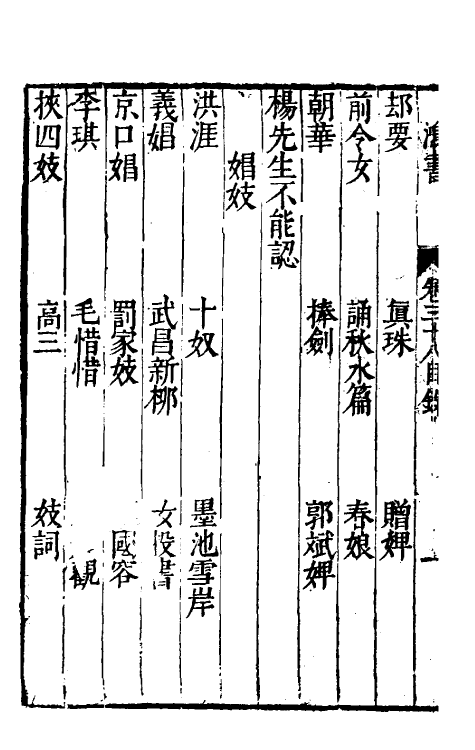 鴻書 卷三十八目錄 一
却要 眞珠 贈婢
前令女 誦秋水篇 春娘
朝華 捧劍 郭斌婢
楊先生不能認
娼妓
洪涯 十奴 墨池雪岸
義娼 武昌新柳 女校書
京口娼 罰家妓 國容
李琪 毛惜惜 觀
挾四妓 高三 妓詞